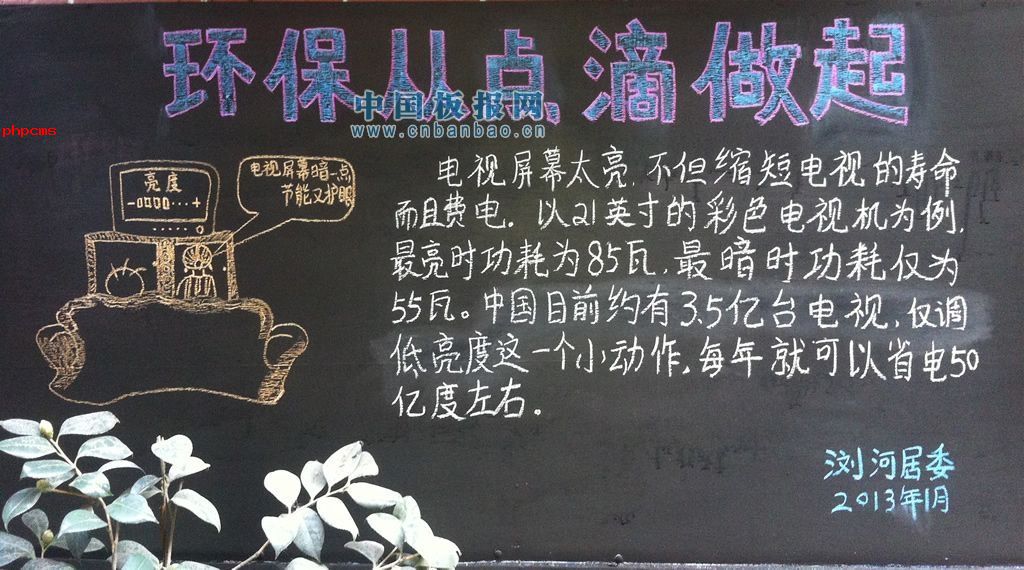 环保从点滴做起
中国板报网
www.cnbanbao.cn
phpcms
电视屏幕暗一点
节能又护眼
亮度
-     +
电视屏幕太亮,不但缩短电视的寿命
而且费电。以21英寸的彩色电视机为例,
最亮时功耗为85瓦,最暗时功耗仅为
55瓦。中国目前约有3.5亿台电视,仅调
低亮度这一个小动作,每年就可以省电50
亿度左右。
浏河居委
2013年1月